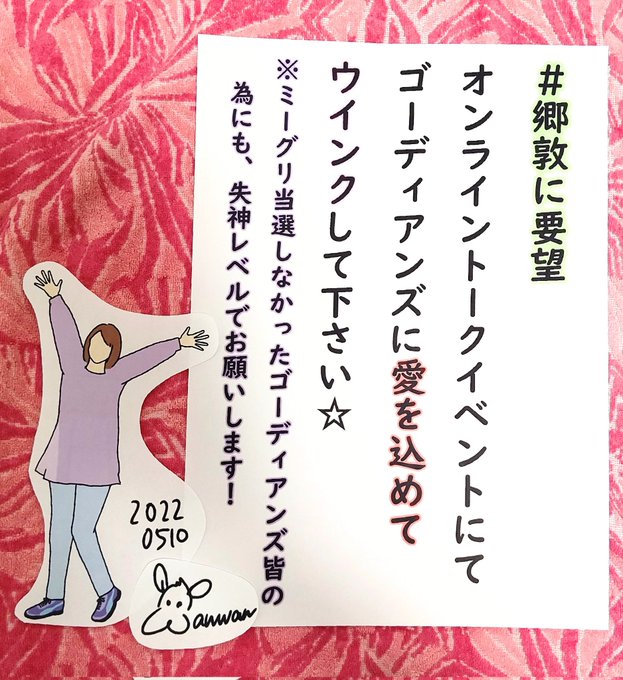 #郷敦に要望
オンライントークイベントにて
ゴーディアンズに愛を込めて
ウインクして下さい☆
※ミーグリ当選しなかったゴーディアンズ皆の
為にも、失神レベルでお願いします!
2022
0510
Wanwan